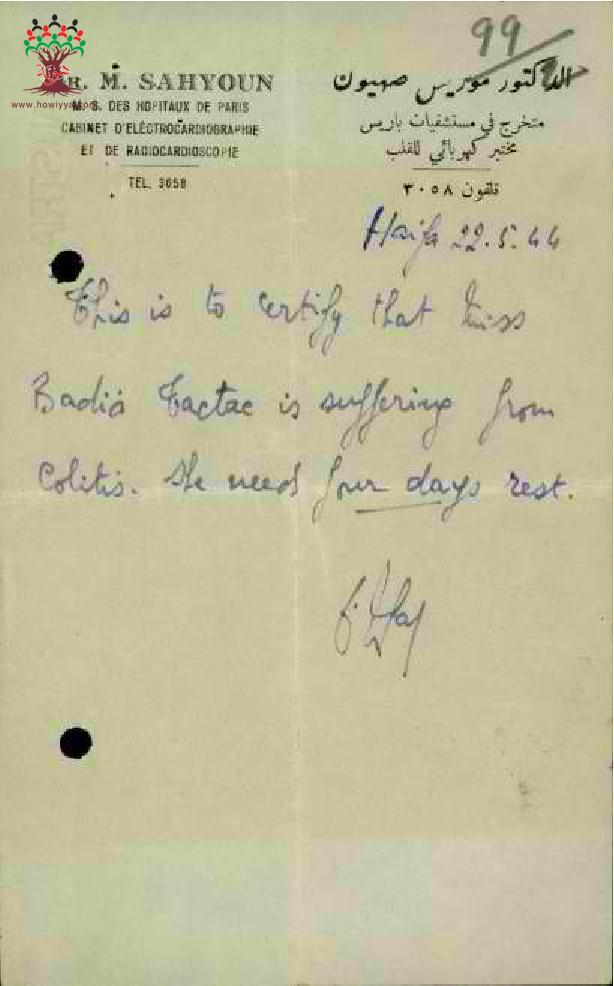 99
DR. M. SAHYOUN
M. S. DES HOPITAUX DE PARIS
CABINET D'ELÉCTROCARDIOGRAPHIE
ET DE RADIOCARDIOSCOPIE
TEL. 3058
الدكتور موريس صهيون
متخرج في مستشفيات باريس
مختبر كهربائي للقلب
تلفون ٣٠٥٨
www.howiyya.com
Haifa 22.5.44
This is to certify that Miss
Badia Tactac is suffering from
Colitis. She needs four days rest.